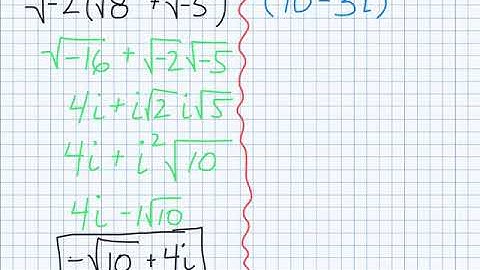 √-2(√8 + √-5)
(10-3i)
√-16 + √-2√-5
4i + i√2 i√5
4i + i²√10
4i - 1√10
-√10 + 4i